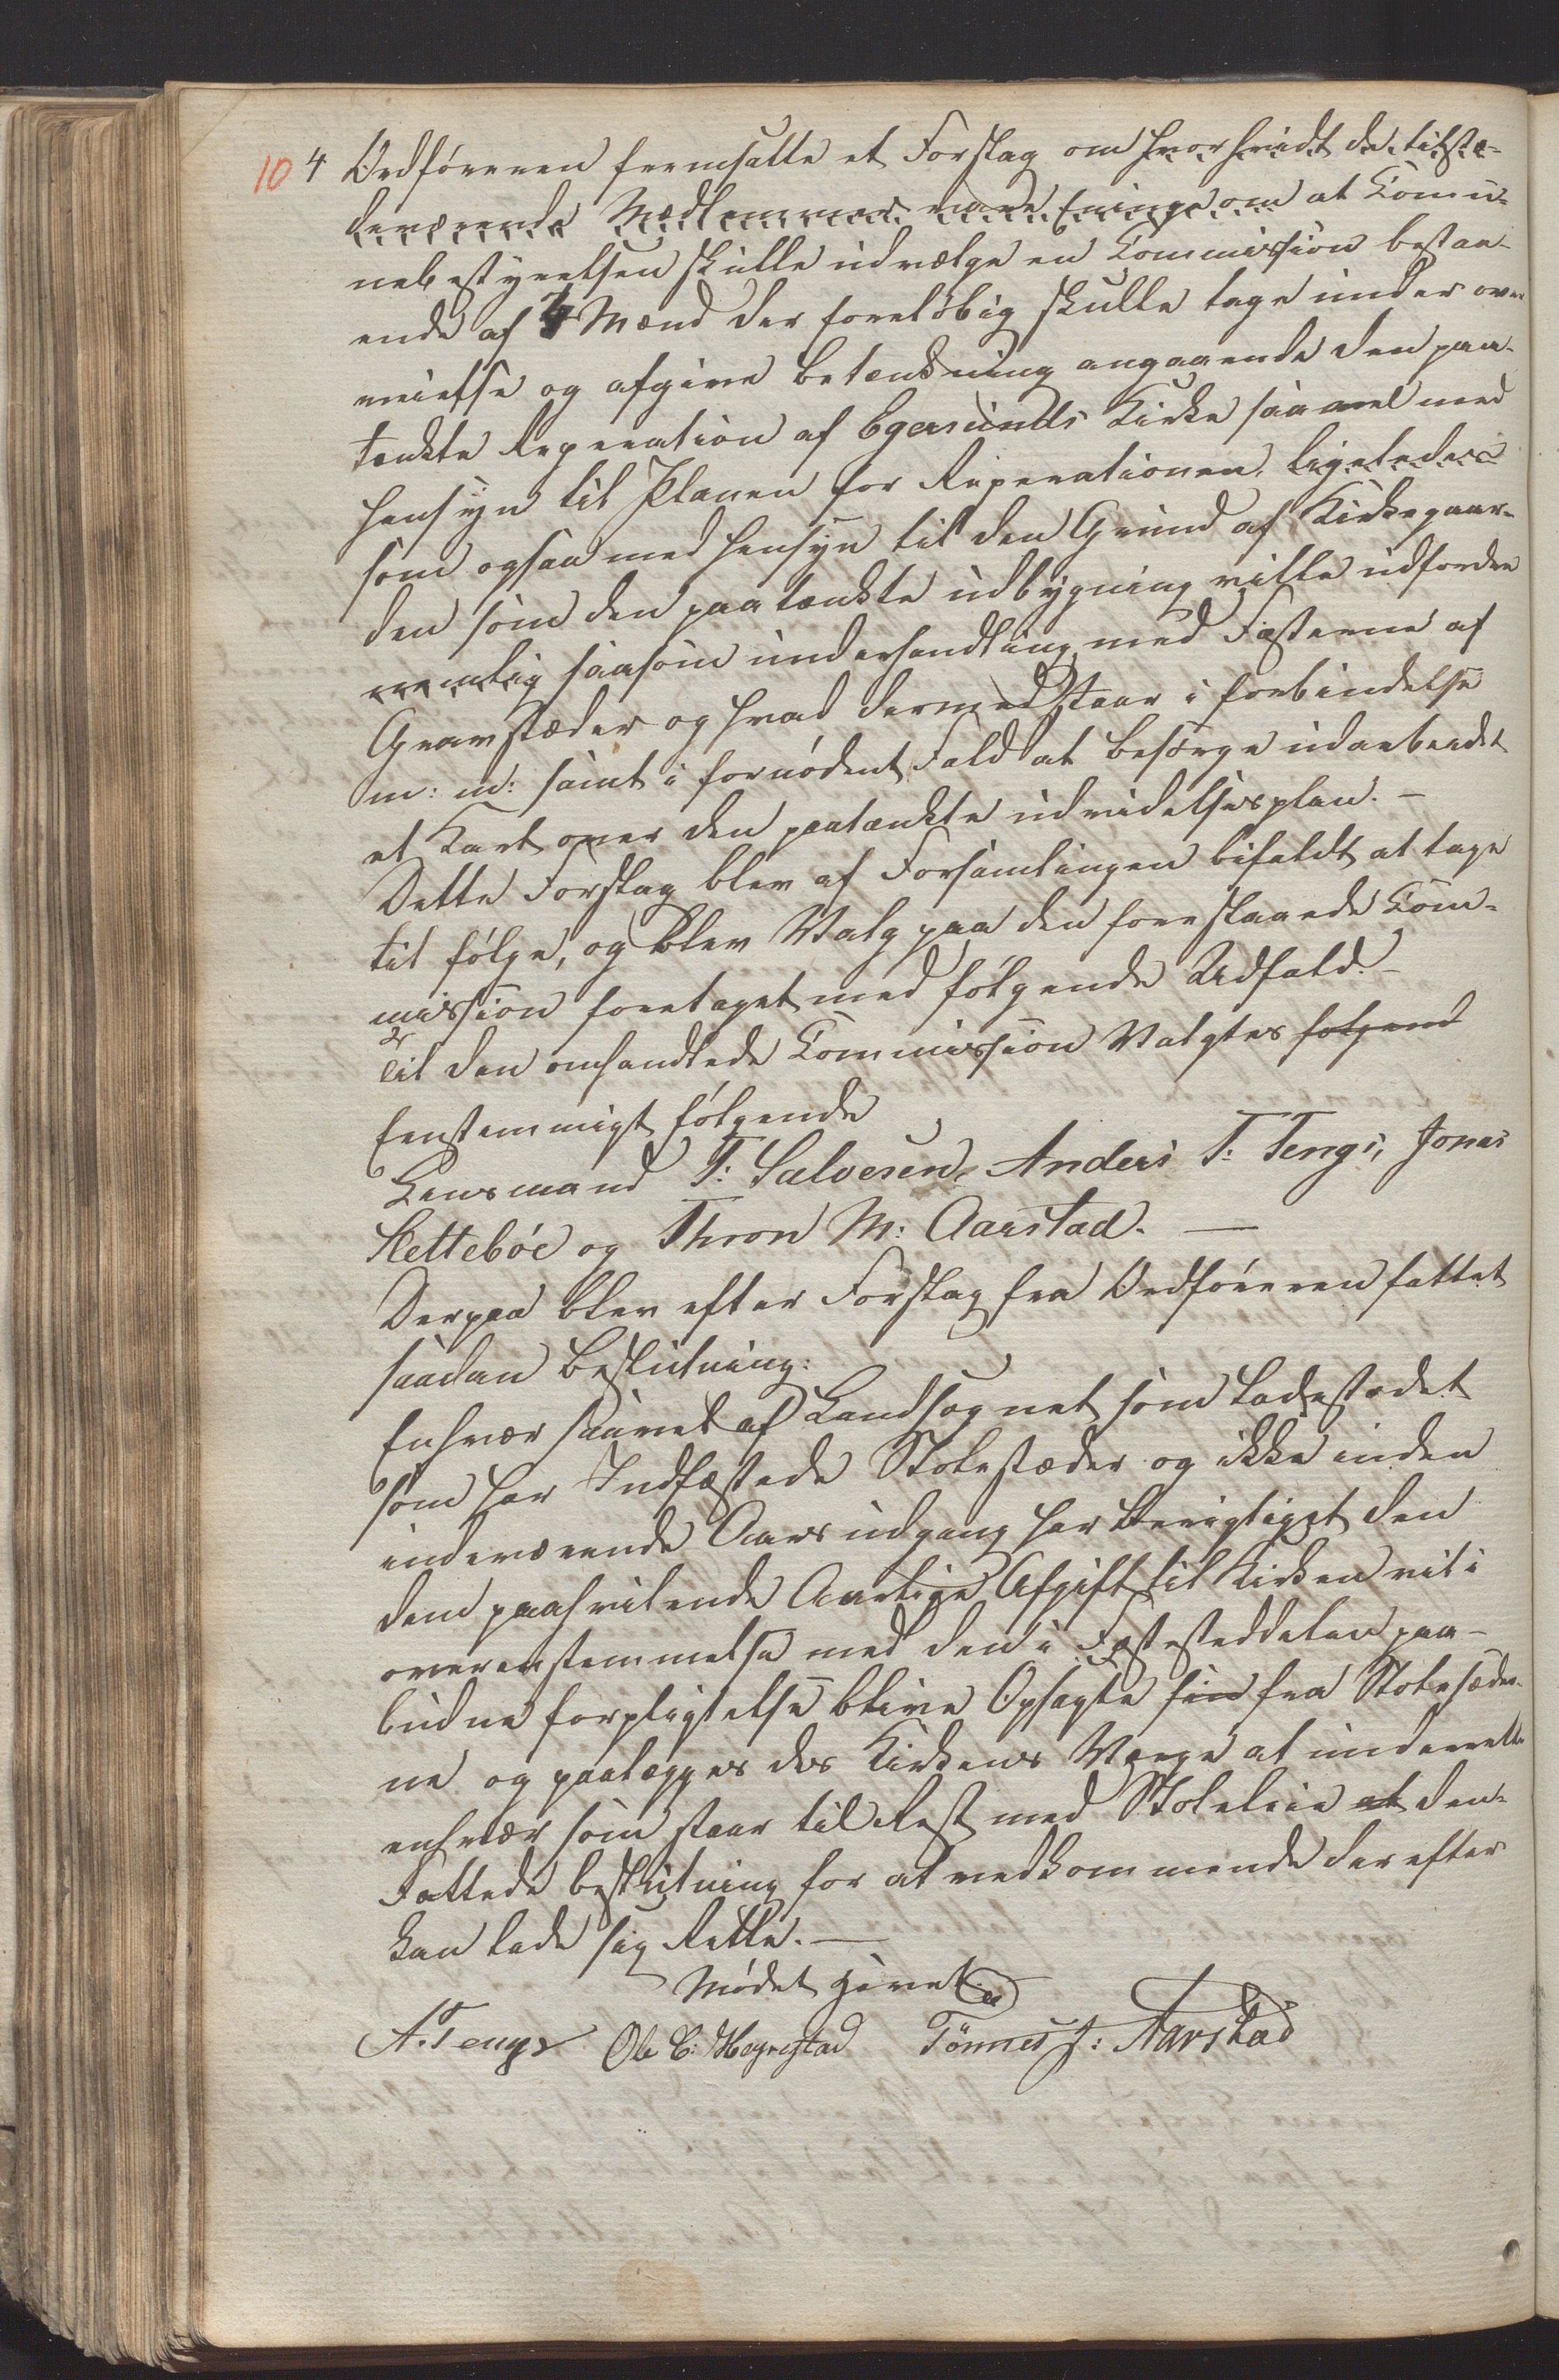 10 4 Ordføreren fremsatte et Forslag om hvorhvidt de tilstæ-
deværende Medlemmer vare Eninge om at Comu-
nebestyrelsen skulle udvælge en Commission bestaa-
ende af 4 Mænd der foreløbig skulle tage under over
veielse og afgive betænkning angaaende den paa-
tænkte Reperation af Egersunds Kirke saavel med
hensyn til Planen for Reperationen, ligeledes
som ogsaa med hensyn til den Grund af Kirkegaar-
den som den paatænkte udbygning ville udfordre
nemlig saasom underhandling med Fæsterne af
Gravstæder og hvad dermed staar i forbindelse
m: m: samt i fornødent Fald at besørge udarbeidet
et Kart over den paatænkte udvidelsesplan. —
Dette Forslag blev af Forsamlingen bifaldt at tage
til følge, og blev Valg paa den foreslaaede Com-
mission foretaget med følgende Udfald. —
Til den omhandlede Commission Valgtes følgend
Eenstemmigt følgende
Lensmand T: Salvesen, Anders T: Tengs, Jonas
Slettebøe og Thron M: Aarstad. —
Derpaa blev efter Forslag fra Ordføreren fattet
saadan beslutning:
Enhver saavel af Landsognet som Ladestædet
som har Indfæstede Stolestæder og ikke inden
indeværende Aars udgang har berigtiget den
dem paahvilende Aarlige Afgift til Kirken vil i
overenstemmelse med den i Fæsteseddelen paa-
budne forpligtelse blive Opsagte sin fra Stolesæder-
ne og paalægges des Kirkens Værge at underrette
enhver som staar til Rest med Stoleleie at den-
Fattede beslutning for at vedkommende derefter
kan lade sig Rette. —
Mødet hævet
A. Tengs Ole C: Hegrestad Tönnes J: Aarstad